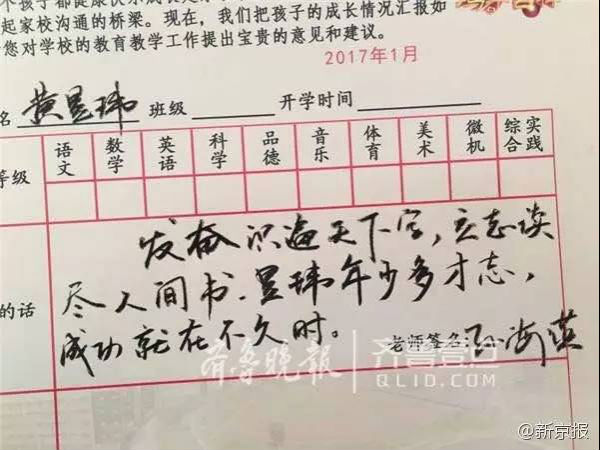 个孩子都健康快乐成长是
起家校沟通的桥梁。现在，我们把孩子的成长情况汇报如
您对学校的教育教学工作提出宝贵的意见和建议。
2017年1月
名 黄昱玮 班级 开学时间
等级 语文 数学 英语 科学 品德 音乐 体育 美术 微机 综合实践
发奋识遍天下字，立志读
的话 尽人间书。昱玮年少多才志，
成功就在不久时。
老师签名 孙海英
齐鲁晚报 齐鲁壹点
QLID.COM
@新京报